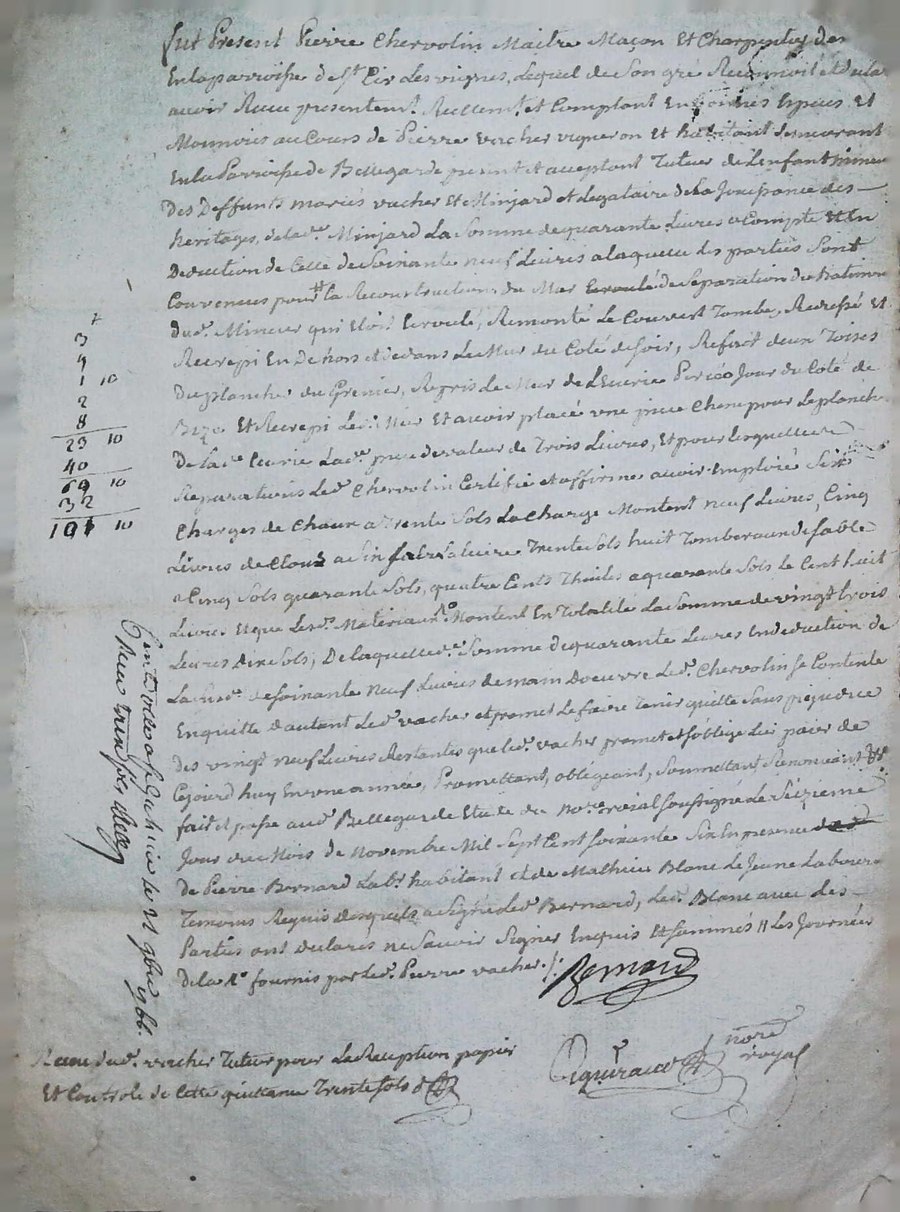 fut Present Pierre Chervolin Maitre Maçon Et Charpentier de
En la parroisse de St Cir Les vignes, Lequel de Son gré Reconnoit et declare
avoir Receu presentemt. Reellemt. et Comptant En bonnes Especes Et
Monnoies au Cours de Pierre vacher vigneron et habitant demeurant
En la Parroisse de Bellegarde present et acceptant Tuteur de L'enfant mineur
Des Deffunts mariés vacher Et Minjard et Legataire de La Jouissance des
heritages, de lad.e Minjard La Somme de quarante Livres a Compte et En
Deduction de Celle de Soixante neuf Livres a laquelle les parties Sont
Convenues pour # la Reconstruction du Mur Ecroulé de Separation du batiment
dud. Mineur qui Etoit Ecroulé, Remonté Le Couvert Tombé, Recrépé Et
Recrepi En Dehors et dedans Le Mur du Coté de Soir, Refait deux Toises
Du plancher du Grenier, Repris Le Mur de L'Ecurie Jour du Coté de
Bize Et Recrepi Led. Mur Et avoir placé une piece Chene pour Le planche
De Lad.e Ecurie Lad.e piece de valeur de Trois Livres, Et pour lesquelles
Reparations Led. Chervolin Certifie et affirme avoir Emploié Six
Charges de Chaux a Trente Sols La Charge Montent neuf Livres, Cinq
Livres de Clous a Six Sols La Livre Trente Sols huit Tomberaux de Sable
a Cinq Sols quarante Sols, quatre Cents Thuiles a quarante Sols Le Cent huit
Livres Et que Lesd. Materiaux Montent En Totalité La Somme de vingt trois
Livres dix Sols, De laquelle Somme de quarante Livres En deduction de
La Susd. de Soixante neuf Livres de main doeuvre Led. Chervolin Se Contente
En quitte d'autant Led. vacher et promet Le faire Tenir quitte Sans prejudice
des vingt neuf Livres Restantes que Led. vacher promet et s'oblige Lui paier de
Cejourd'huy En une année, Promettant, obligeant, Soumettant, Renonciant &c
fait et passé aud. Bellegarde Etude du no.re roial Soussigné Le Seizieme
Jour du Mois de Novembre Mil Sept Cent Soixante Six En presence
De Pierre Bernard Lab.r habitant et de Mathieu Blanc Le Jeune Laboureur
Temoins Requis desquels a Signé Led. Bernard, Led. Blanc avec Les
Parties ont declarés ne Savoir Signer Enquis Et Sommés // Les Journées
De La fournis par Led. Pierre vacher ./.
Bernard
nore
royal
3
9
1 10
2
8
23 10
40
69 10
32
101 10
Controllé a St Galmier le 21 9bre 1766.
Receu treize sols
Receu dud. vacher Tuteur pour La Reception papier
Et Controle de Cette quittance Trente sols